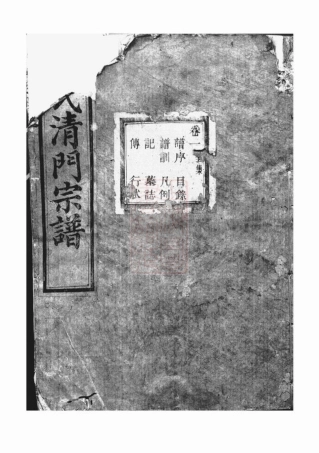 卷一 集
譜序 目錄
譜訓 凡例
記 墓誌
傳 行狀
氏清門宗譜